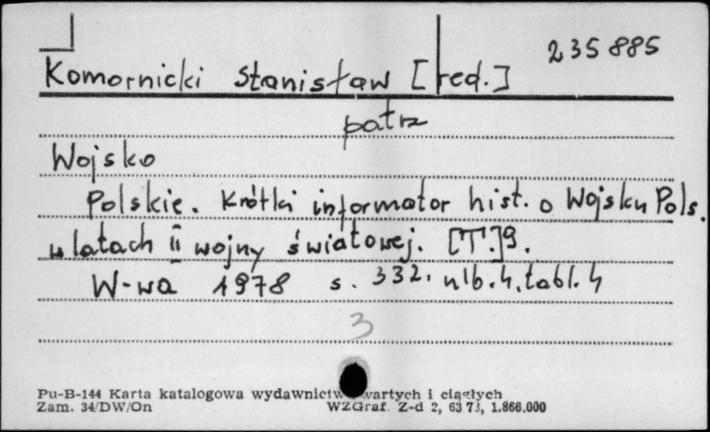 235885
Komornicki Stanisław [red.]
patrz
Wojsko
Polskie. Krótki informator hist. o Wojsku Pols.
w latach II wojny światowej. [T.]9.
W-wa 1978 s. 332. nlb. 4, tabl. 4
3
Pu-B-144 Karta katalogowa wydawnictw zwartych i ciągłych
Zam. 34/DW/On WZGraf. Z-d 2, 63 73, 1.866.000